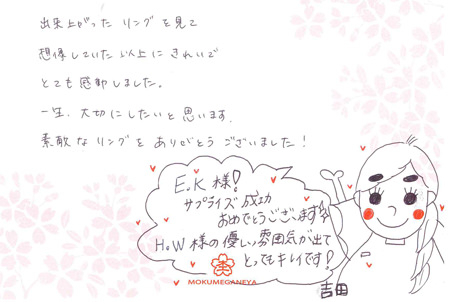 出来上がった リングを見て
想像していた以上に きれいで
とても感動しました。
一生、大切にしたいと思います。
素敵なリングを ありがとう ございました！
E.K 様!
サプライズ成功
おめでとうございます
H.W 様の優しい雰囲気が出て
とってもキレイです!
MOKUMEGANEYA
吉田